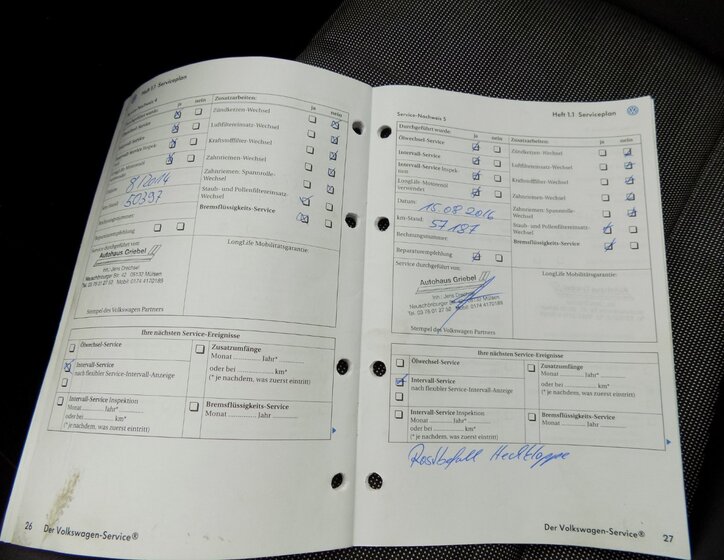 Heft 1.1 Serviceplan
Service-Nachweis 4
ja nein
Zusatzarbeiten: ja nein
Zündkerzen-Wechsel
Luftfiltereinsatz-Wechsel
Kraftstofffilter-Wechsel
Zahnriemen-Wechsel
Zahnriemen: Spannrolle-
Wechsel
Staub- und Pollenfiltereinsatz-
Wechsel
Bremsflüssigkeits-Service
8/2014
50397
Rechnungsnummer:
Reparaturempfehlung
Service durchgeführt von:
LongLife Mobilitätsgarantie:
Autohaus Griebel
Inh.: Jens Drechsel
Neuschönburger Str. 42 08132 Mülsen
Tel. 03 76 01 27 52 Mobil: 0174 4170185
Stempel des Volkswagen Partners
Ihre nächsten Service-Ereignisse
Ölwechsel-Service
Intervall-Service
nach flexibler Service-Intervall-Anzeige
Intervall-Service Inspektion
Monat Jahr*
oder bei km*
(* je nachdem, was zuerst eintritt)
Zusatzumfänge
Monat Jahr*
oder bei km*
(* je nachdem, was zuerst eintritt)
Bremsflüssigkeits-Service
Monat Jahr
26 Der Volkswagen-Service®
Service-Nachweis 5
Heft 1.1 Serviceplan
Durchgeführt wurde: ja nein
Ölwechsel-Service
Intervall-Service
Intervall-Service Inspek-
tion
LongLife-Motorenöl
verwendet
Datum: 15.08.2016
km-Stand: 57187
Rechnungsnummer:
Reparaturempfehlung
Zusatzarbeiten: ja nein
Zündkerzen-Wechsel
Luftfiltereinsatz-Wechsel
Kraftstofffilter-Wechsel
Zahnriemen-Wechsel
Zahnriemen: Spannrolle-
Wechsel
Staub- und Pollenfiltereinsatz-
Wechsel
Bremsflüssigkeits-Service
Service durchgeführt von:
LongLife Mobilitätsgarantie:
Autohaus Griebel
Inh.: Jens Drechsel
Neuschönburger Str. 42 08132 Mülsen
Tel. 03 76 01 27 52 Mobil: 0174 4170185
Stempel des Volkswagen Partners
Ihre nächsten Service-Ereignisse
Ölwechsel-Service
Intervall-Service
nach flexibler Service-Intervall-Anzeige
Intervall-Service Inspektion
Monat Jahr*
oder bei km*
(* je nachdem, was zuerst eintritt)
Zusatzumfänge
Monat Jahr*
oder bei km*
(* je nachdem, was zuerst eintritt)
Bremsflüssigkeits-Service
Monat Jahr
Rostbefall Heckklappe
Der Volkswagen-Service® 27